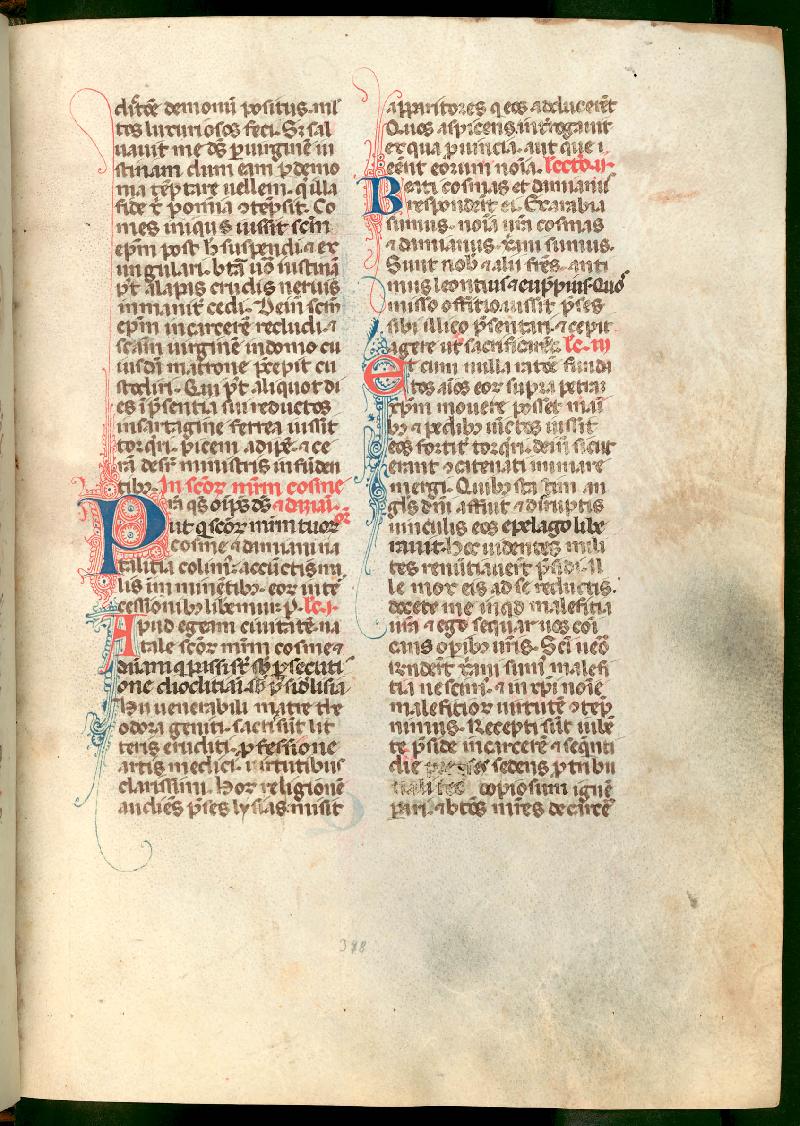 ditõe demonũ positus. ml
tos luxuriosos feci. Sz sal
uauit me ds p uirginẽ iu
stinam dum eam p demo
nia tẽptare uellem. q illa
fide ⁊ pornia ɔtẽpsit. Co
mes iniqus iussit scm̃
epm̃ post h suspendi ⁊ ex
ungulari. btã uo iustinã
pt alapis crudis neruis
inmanit cedi. Dein scm̃
epm̃ in carcerẽ recludi. ⁊
scãm uirginẽ in domo cu
iusdã matrone precepit cu
stodiri. Qui pt aliquot di
es i psentia sui reductos
in sartagine ferrea iussit
torqri. picem adipẽ ⁊ ce
rã desr ministris infũden
tibz. In scoz mrm cosme
⁊ damiani. or
Prã qs oĩps ds
ut q scoz mrm tuoz
cosme ⁊ damiani na
talitia colim. a cunctis ma
lis im minẽtibz. eoz inte
cessionibz liberemur. p. lc. i.
Apud egeam ciuitatẽ na
tale scoz mrm cosme ⁊
damiani q passi st sb psecuti
one dioclitiani sb pside lisia
Hii uenerabili matre the
odora geniti. sacris sũt lit
teris eruditi. pfessione
artis medici. uirtutibus
clarissimi. Hoz religionẽ
audiẽs pses lysias misit
apparitores q eos adducerẽt
Quos aspiciens. introgauit
ex qua puincia. aut que i
eent eorum noĩa. lectio. ii.
Beati cosmas et damianus
responderũt ei. Ex arabia
sumus. noĩa nra cosmas
⁊ damianus. xrani sumus.
Sunt nob ⁊ alii fres. anti
mus leontius ⁊ euppius. Quo
misso offitio. iussit pses
sibi illico psentari. ⁊ cepit
agere ut sacrificarẽt. lc. iii
Et cum nulla ratõe fũda
tos aĩos eoz supra petrã
xpm mouere posset. mañ
bz ⁊ pedibz uictos iussit
eos fortit torqri. dein sicut
erant ɔcatenati in mare
mergi. Quibz statim an
gls dni affuit ⁊ disruptis
uinculis eos e pelago libe
rauit. Hoc uidentes mili
tes renũtiauerũt psidi. Il
le mox eis ad se reductis.
docete me inqd malefitia
ura ⁊ ego sequar uos cõi
cans opibz uris. Sci uero
rñderũt xrani sumus. malefi
tia nescim. ⁊ in xpi noĩe
maleficioz uirtutẽ ɔtẽp
nimus. Recepti sũt iube
te pside in carcerẽ ⁊ seqnti
die preses sedens p tribu
nali iussit copiosum ignẽ
parari. ⁊ btõs mres de carcẽ
378